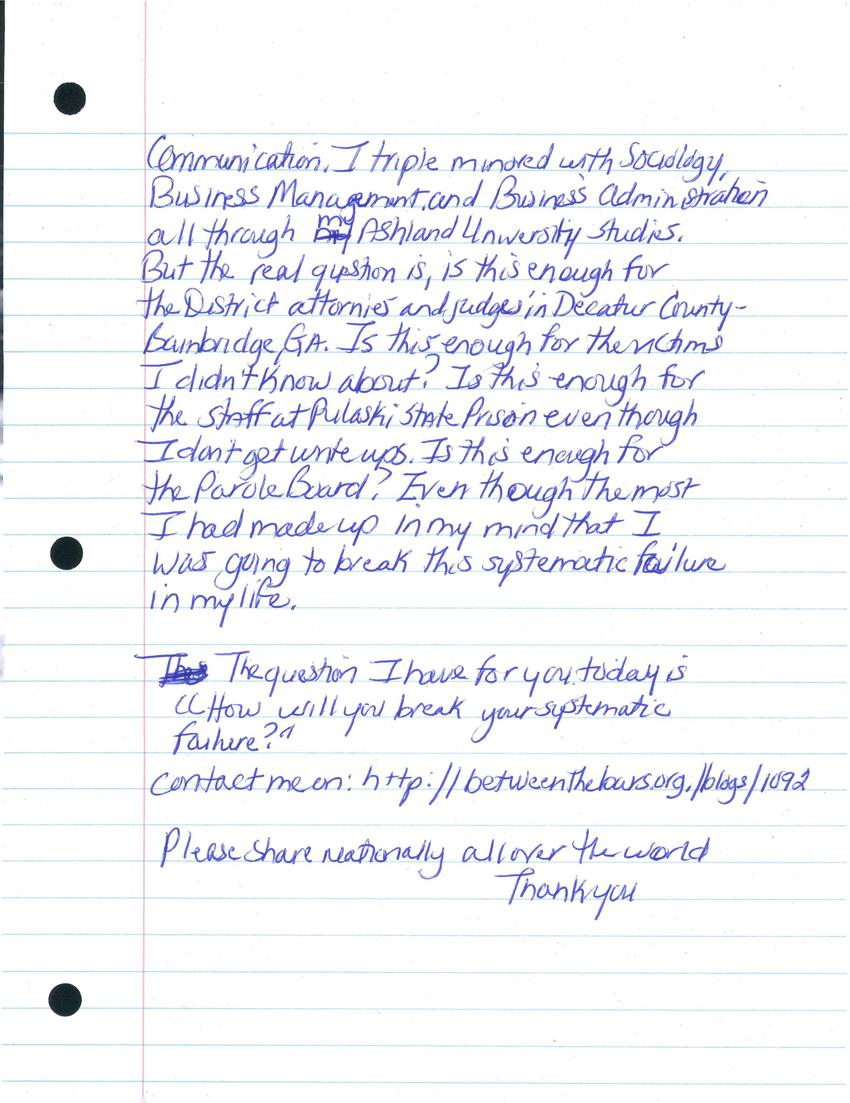 Communication. I triple minored with Sociology,
Business Management, and Business Administration
all through my Ashland University studies.
But the real question is, is this enough for
the District attornies and judges in Decatur County-
Bainbridge, GA. Is this enough for the victims
I didn't know about? Is this enough for
the staff at Pulaski State Prison even though
I don't get write ups. Is this enough for
the Parole Board? Even though the most
I had made up in my mind that I
was going to break this systematic failure
in my life.
The question I have for you today is
"How will you break your systematic
failure?"
Contact me on: http://betweenthebars.org./blogs/1092
Please share nationally all over the world
Thank you